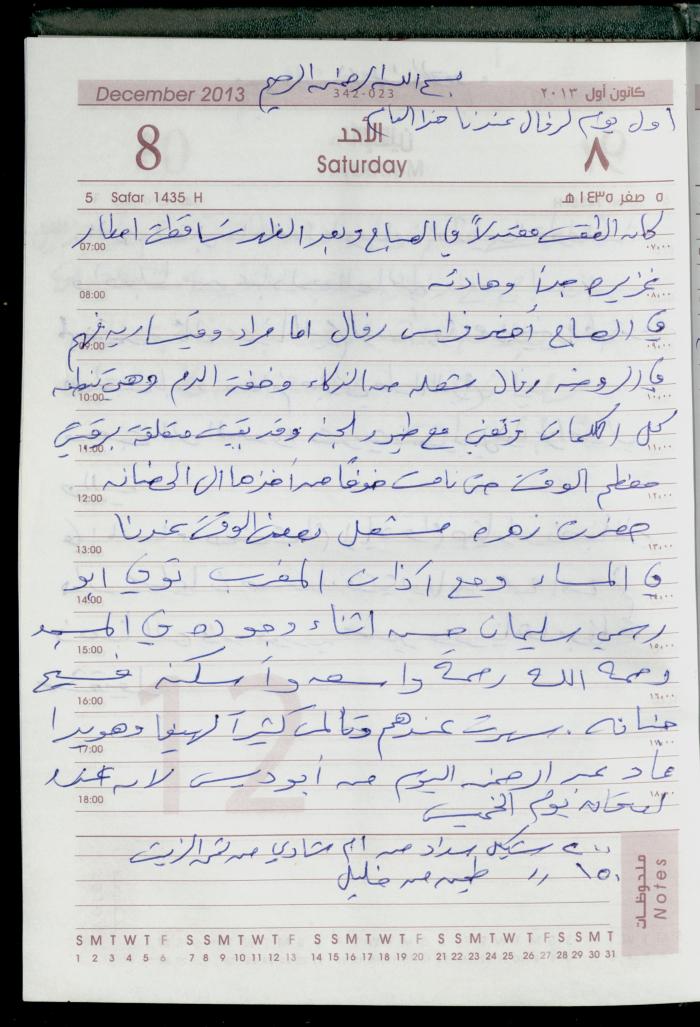 بسم الله الرحمن الرحيم
December 2013
342-023
كانون أول ٢٠١٣
أول يوم لرفال عندنا هذا العام
8
الأحد
Saturday
٨
5 Safar 1435 H
٥ صفر ١٤٣٥ هـ
كان الطقس معتدلاً في الصباح وبعد الظهر تساقطت امطار
07:00
٠٧,٠٠
غزيره جداً وهادئه
08:00
٠٨,٠٠
في الصباح أحضر فراس رفال اما مراد وقيساريه فهم
09:00
في الروضه رفال شعله من الذكاء وخفة الدم وهي تنطق
10:00
١٠,٠٠
كل الكلمات وتغني مع طيور الجنه وقد بقيت متعلقة برقبتي
11:00
١١,٠٠
معظم الوقت حتى نامت خوفاً من أخذها الى الحضانه
12:00
١٢,٠٠
حضرت زهره مشعل بعض الوقت عندنا
13:00
١٣,٠٠
في المساء ومع آذان المغرب توفي ابو
14:00
١٤,٠٠
رسمي سليمان حسن اثناء وجوده في المسجد
15:00
١٥,٠٠
رحمة الله رحمة واسعه وأسكنه فسيح
16:00
١٦,٠٠
جنانه . سهرت عندهم وتألمت كثيراً لهيفا وهويدا
17:00
١٧,٠٠
عاد عبد الرحمن اليوم من أبوديس لانه عنده
18:00
١٨,٠٠
امتحان يوم الخميس
12
٢٠٠ شيكل سداد من ام شادي من ثمن الزيت
١٥٠ // طحين من خليل
ملحوظات
Notes
S M T W T F S S M T W T F S S M T W T F S S M T W T F S S M T
1 2 3 4 5 6 7 8 9 10 11 12 13 14 15 16 17 18 19 20 21 22 23 24 25 26 27 28 29 30 31